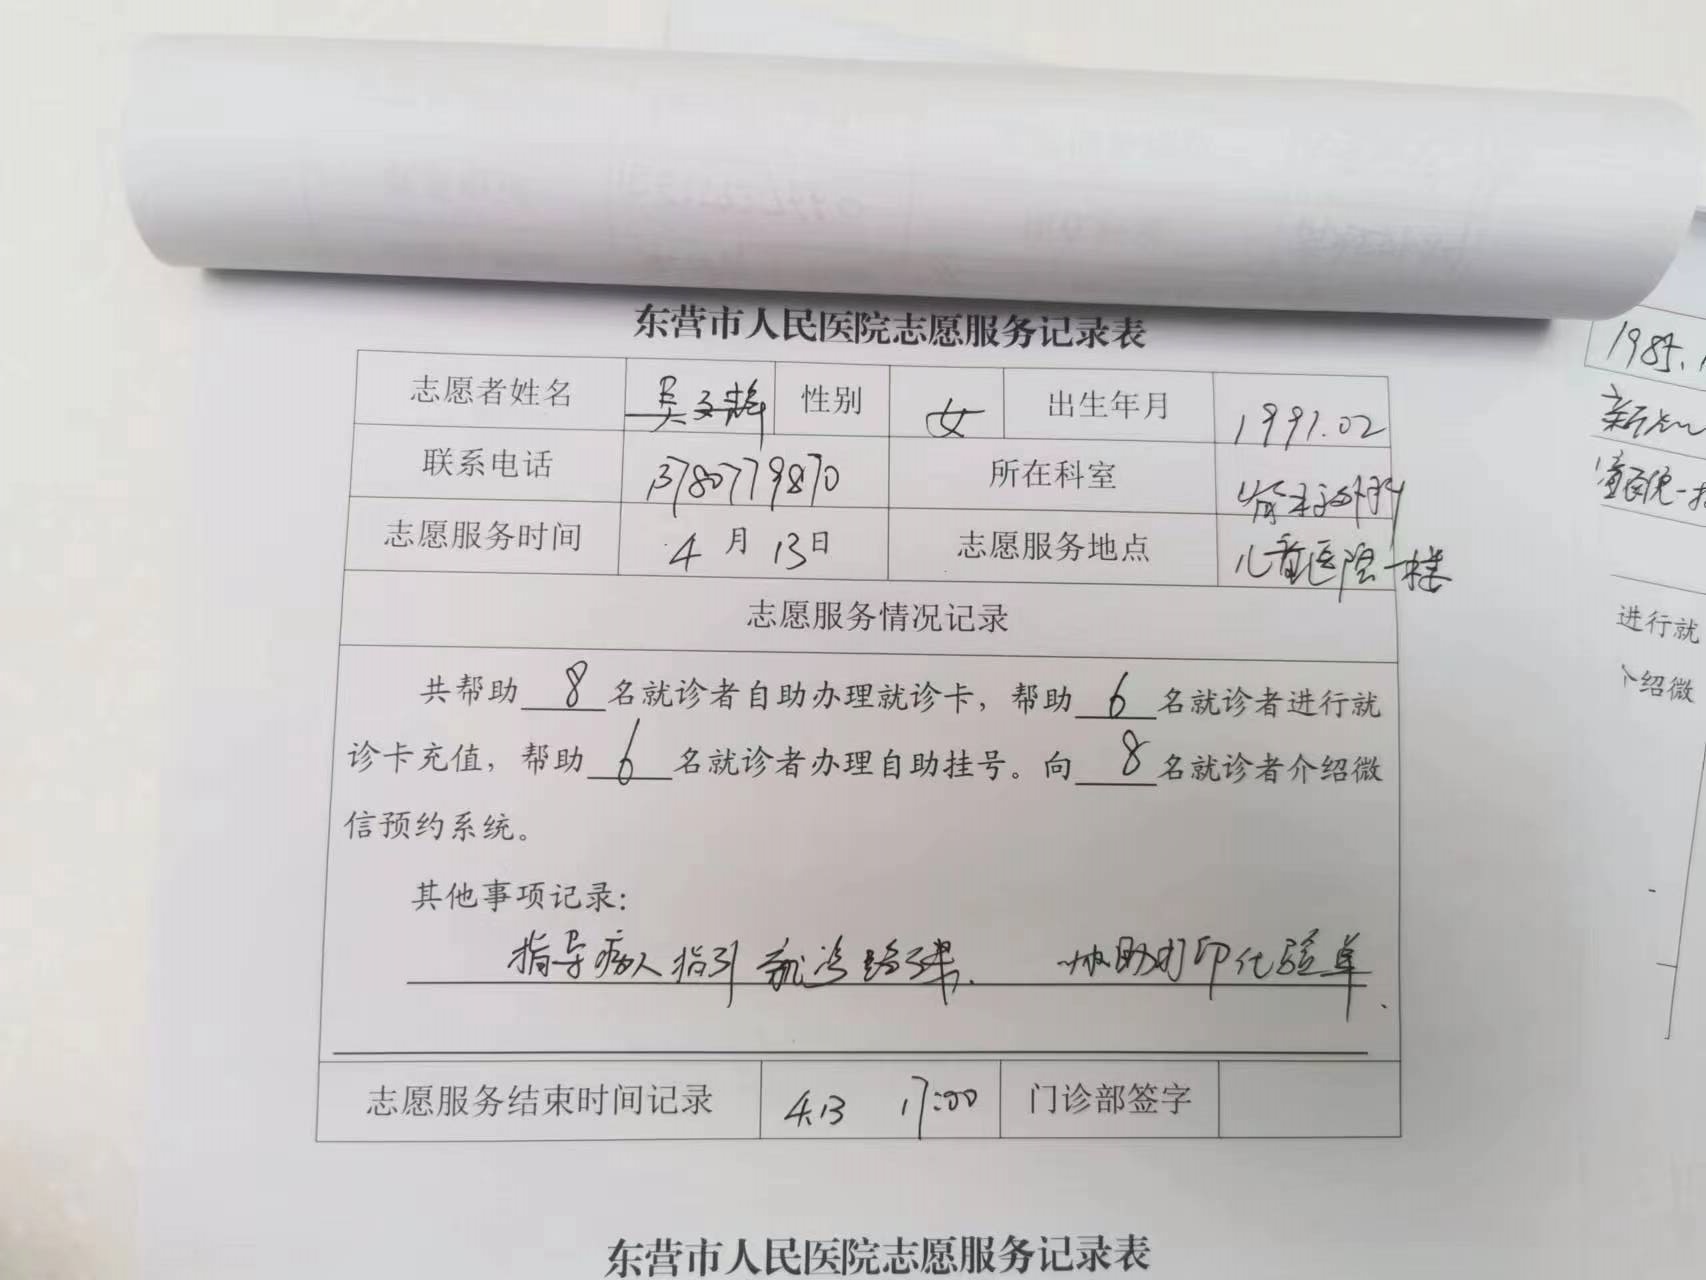 东营市人民医院志愿服务记录表
志愿者姓名 吴 性别 女 出生年月 1991.02
联系电话 13780779870 所在科室
志愿服务时间 4月13日 志愿服务地点 儿童医院一楼
志愿服务情况记录
共帮助8名就诊者自助办理就诊卡，帮助6名就诊者进行就
诊卡充值，帮助6名就诊者办理自助挂号。向8名就诊者介绍微
信预约系统。
其他事项记录：
指导病人指引就诊路线. 协助打印化验单.
志愿服务结束时间记录 4.13 17:00 门诊部签字
东营市人民医院志愿服务记录表
1985.1
进行就
介绍微